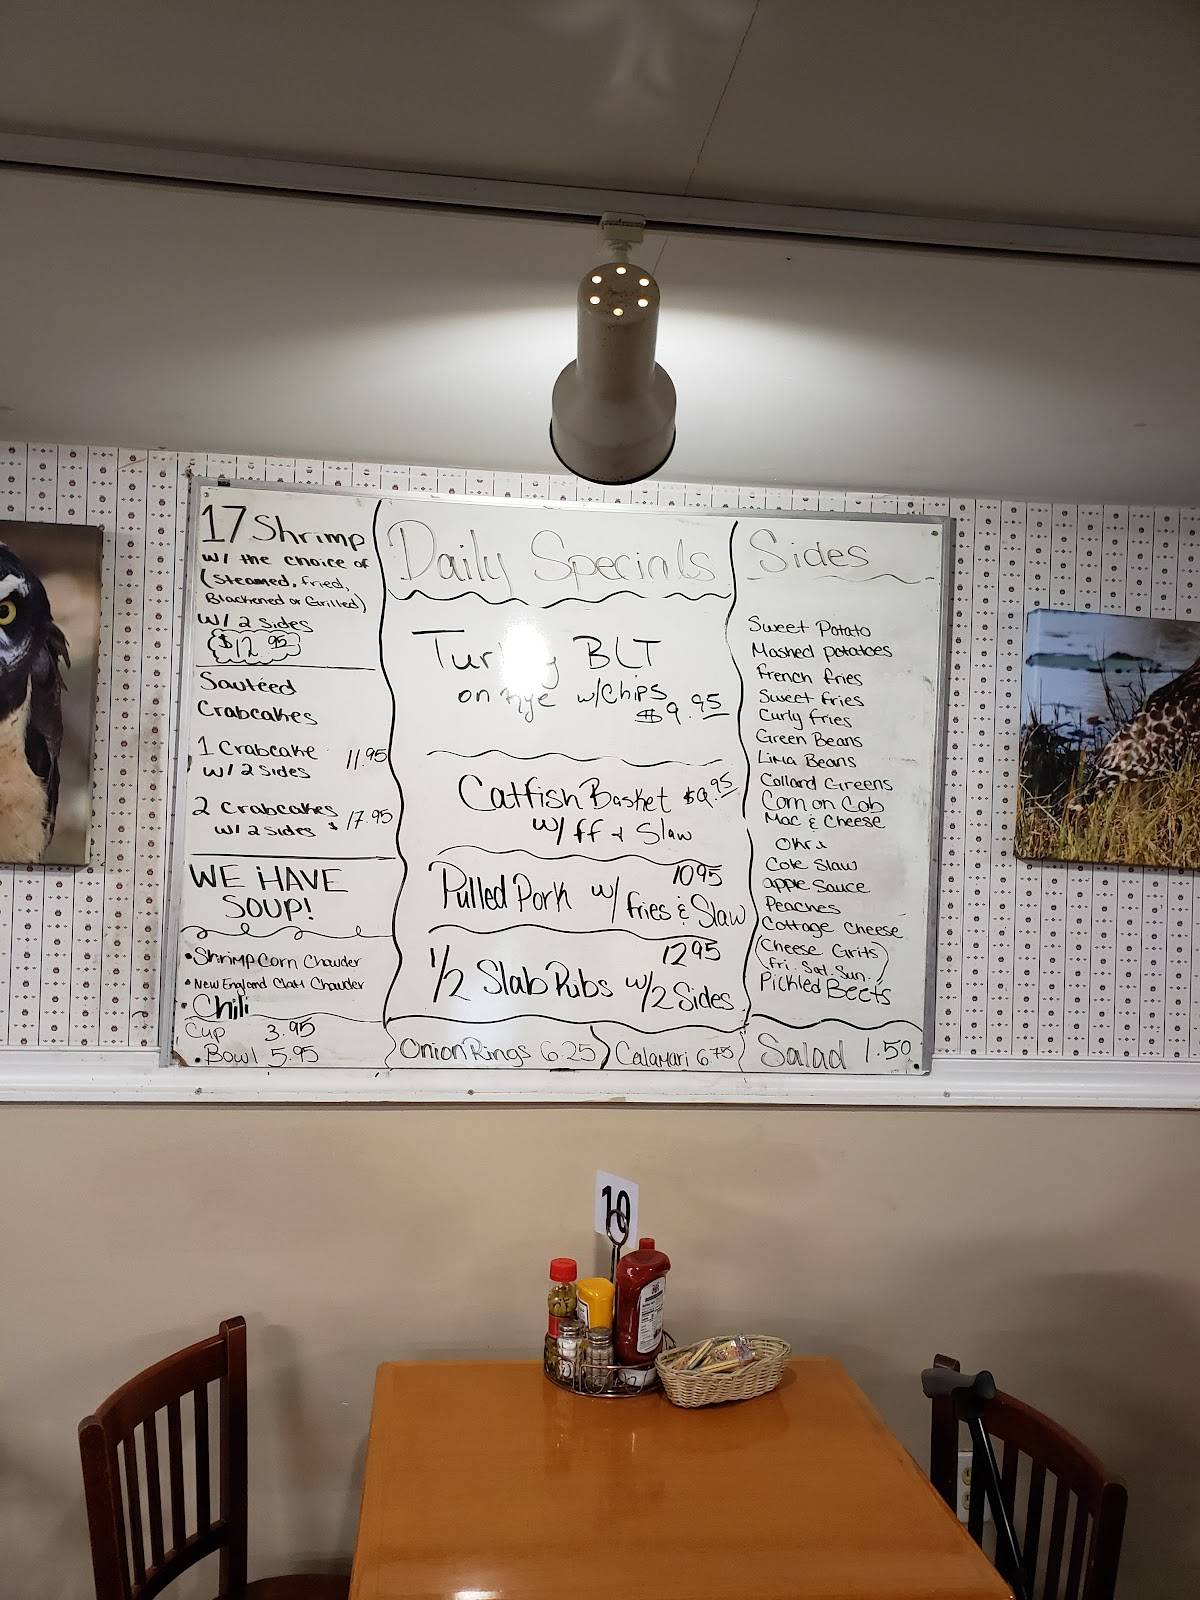 17 Shrimp
w/ the choice of
(Steamed, fried,
Blackened or Grilled)
w/ 2 Sides
$12.95
Sautéed
Crabcakes
1 Crabcake 11.95
w/ 2 sides
2 Crabcakes
w/ 2 sides $17.95
WE HAVE
SOUP!
•Shrimp Corn Chowder
•New England Clam Chowder
•Chili
Cup 3.95
•Bowl 5.95
Daily Specials
Turkey BLT
on Rye w/Chips
$9.95
Catfish Basket $9.95
w/ ff + Slaw
1095
Pulled Pork w/ fries & Slaw
1295
1/2 Slab Rubs w/2 Sides
Onion Rings 6.25
Calamari 6.75
Sides
Sweet Potato
Mashed potatoes
French fries
Sweet fries
Curly fries
Green Beans
Lima Beans
Collard Greens
Corn on Cob
Mac & Cheese
Okra
Cole Slaw
apple Sauce
Peaches
Cottage Cheese
(Cheese Grits)
(Fri. Sat. Sun.)
Pickled Beets
Salad 1.50
10